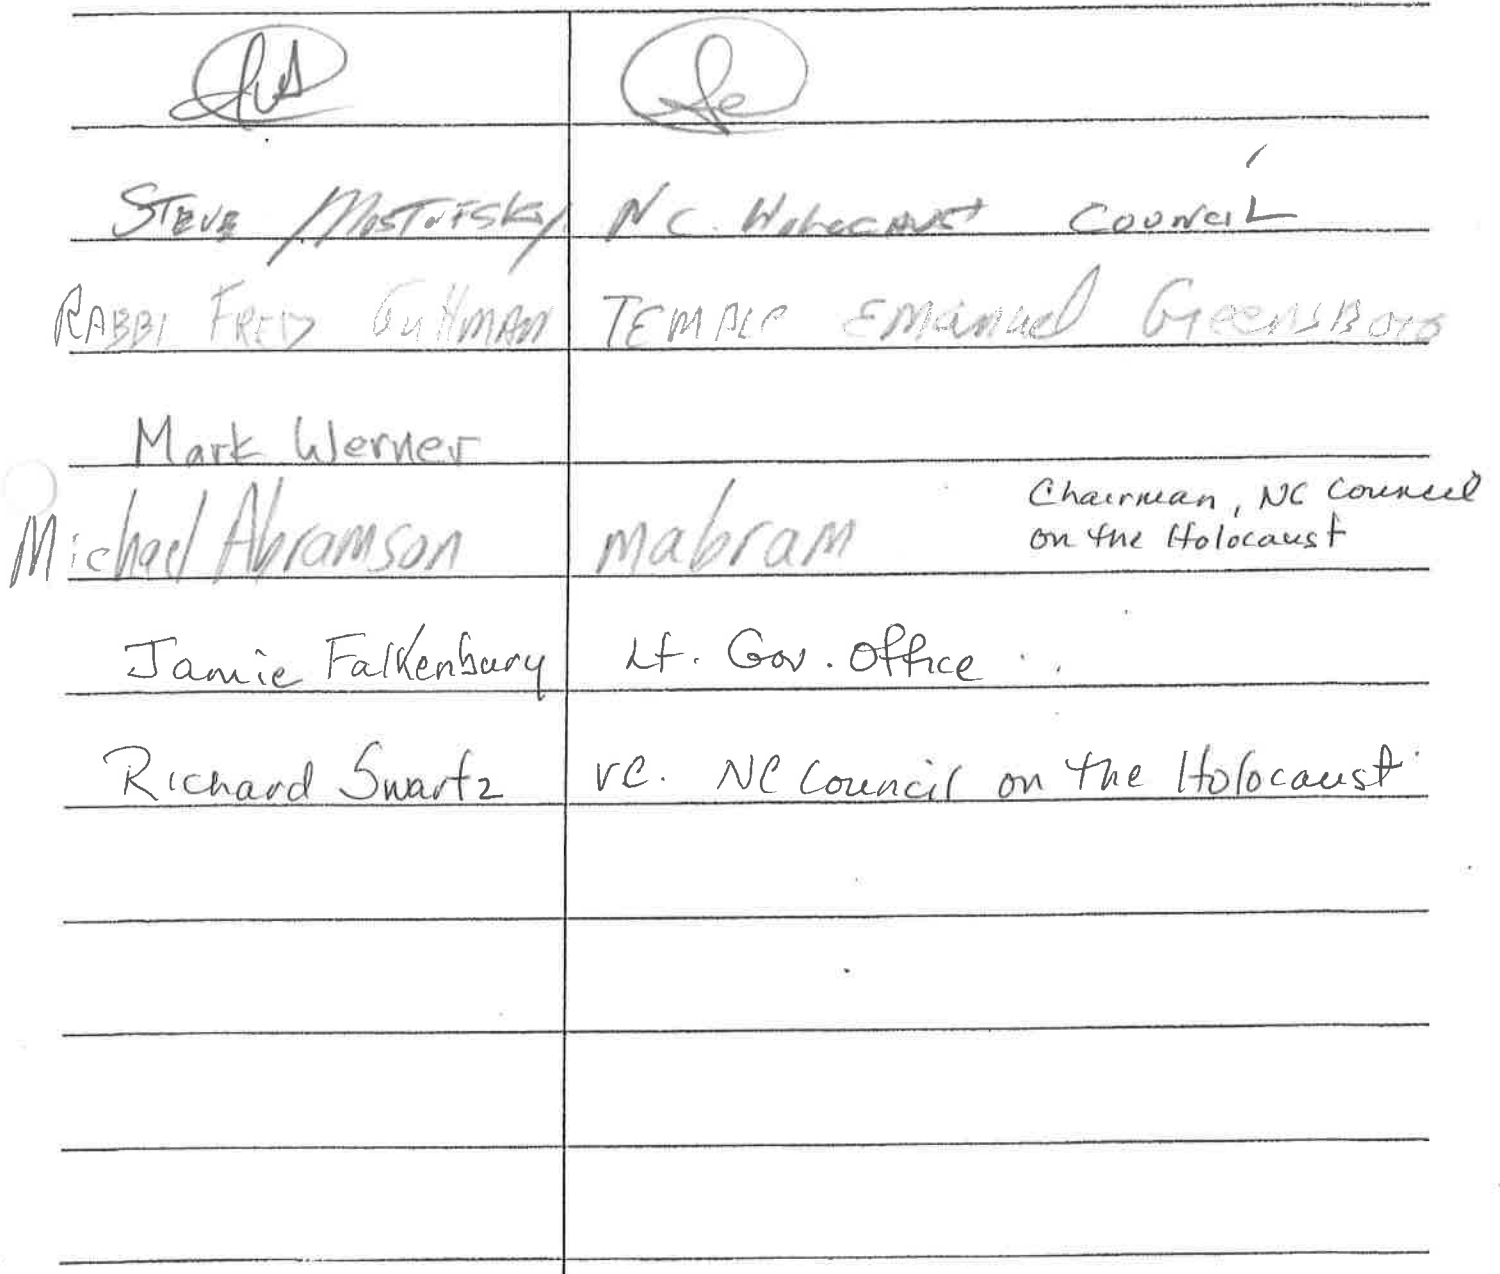 Steve Mostofsky N C. Holocaust Council
RABBI FRED Guttman TEMPLE Emanuel Greensboro
Mark Werner
Michael Abramson mabram Chairman, NC Council
on the Holocaust
Jamie Falkenbury Lt. Gov. Office
Richard Swartz VC. NC Council on the Holocaust